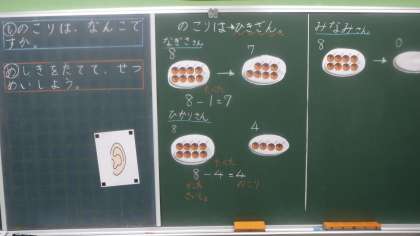 のこりは、なんこで
すか。
め しきをたてて、せつ
めいしよう。
のこりは→ひきざん。
なぎささん
8
7
8-1=7
ひかりさん
8
4
8-4=4
のこり
みなみさん
8
0